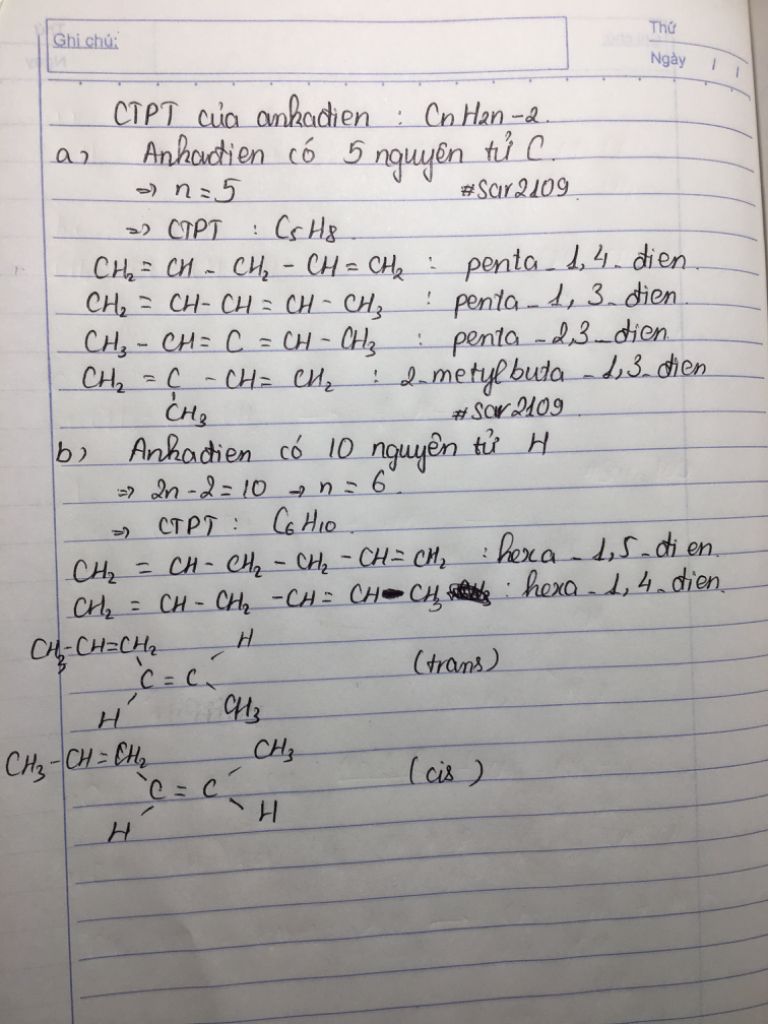 Ghi chú:
Thứ
Ngày / /
CTPT của ankadien : CnH2n-2.
a) Ankadien có 5 nguyên tử C.
=> n = 5 #Sar2109
=> CTPT : C5H8
CH2 = CH - CH2 - CH = CH2 : penta-1,4-dien.
CH2 = CH - CH = CH - CH3 : penta-1,3-dien.
CH3 - CH = C = CH - CH3 : penta-2,3-dien
CH2 = C - CH = CH2 : 2-metylbuta-1,3-dien
CH3 #Sar2109
b) Ankadien có 10 nguyên tử H
=> 2n-2=10 → n = 6.
=> CTPT : C6H10.
CH2 = CH - CH2 - CH2 - CH = CH2 : hexa-1,5-dien.
CH2 = CH - CH2 - CH = CH - CH3 : hexa-1,4-dien.
CH3-CH=CH2 H
C = C (trans)
H CH3
CH3-CH=CH2 CH3
C = C (cis)
H H